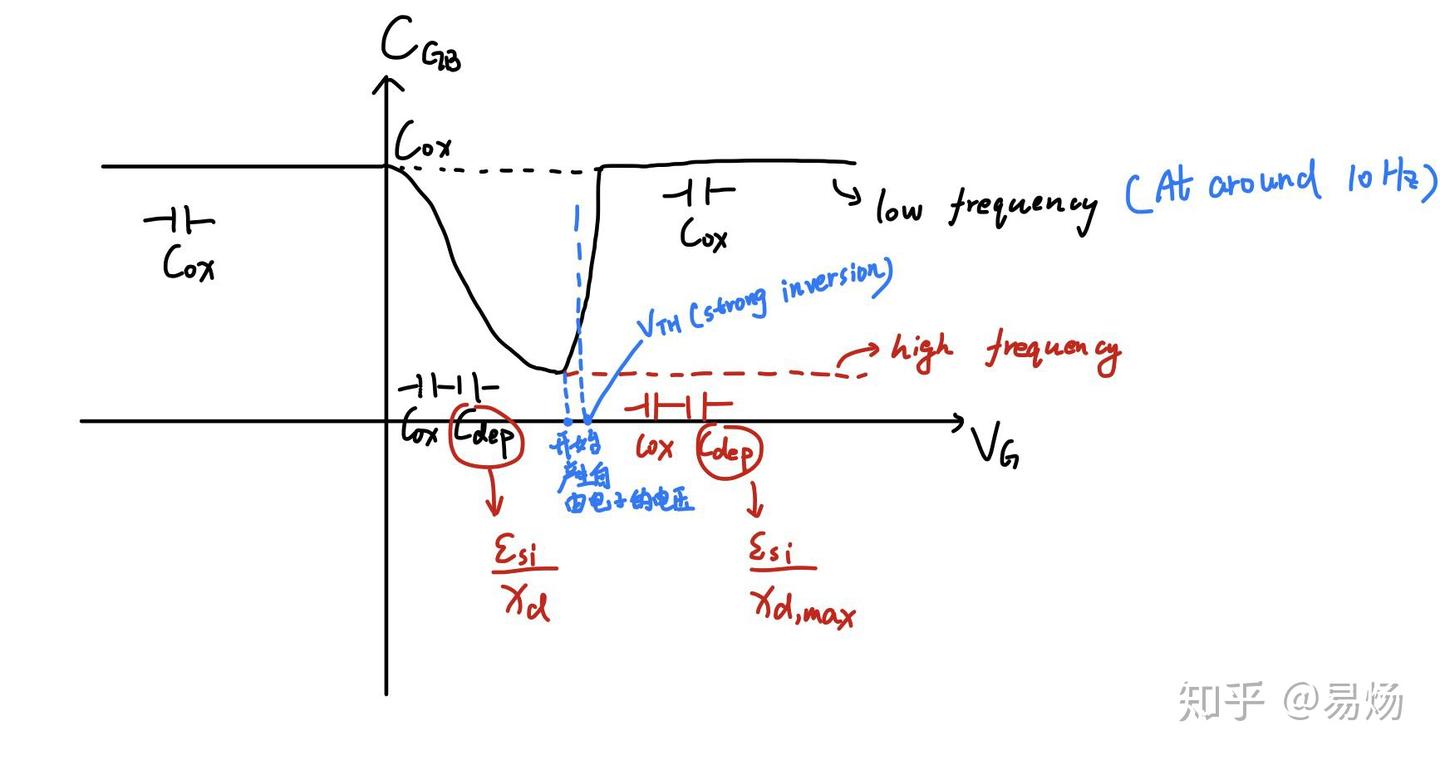 C_GB
Cox
low frequency (At around 10 Hz)
Cox
Cox
V_TH (strong inversion)
high frequency
Cox Cdep
Cox Cdep
V_G
开始
产生自
由电子的电压
εsi
xd
εsi
xd,max
知乎 @易炀